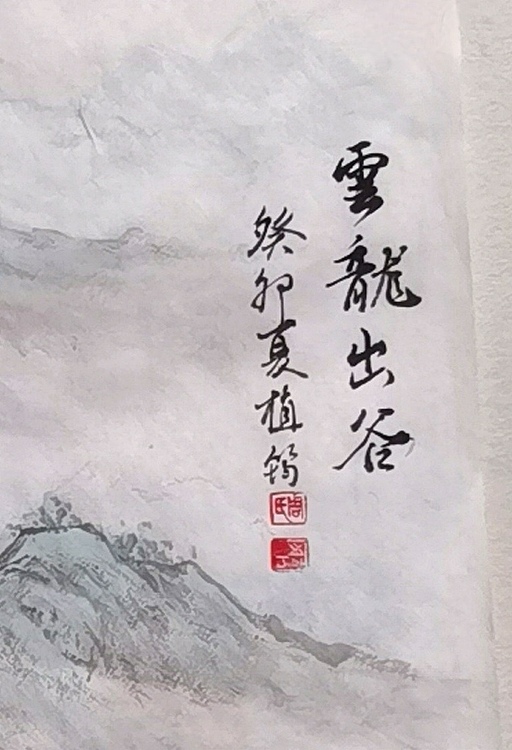 雲龍出谷
癸卯夏植